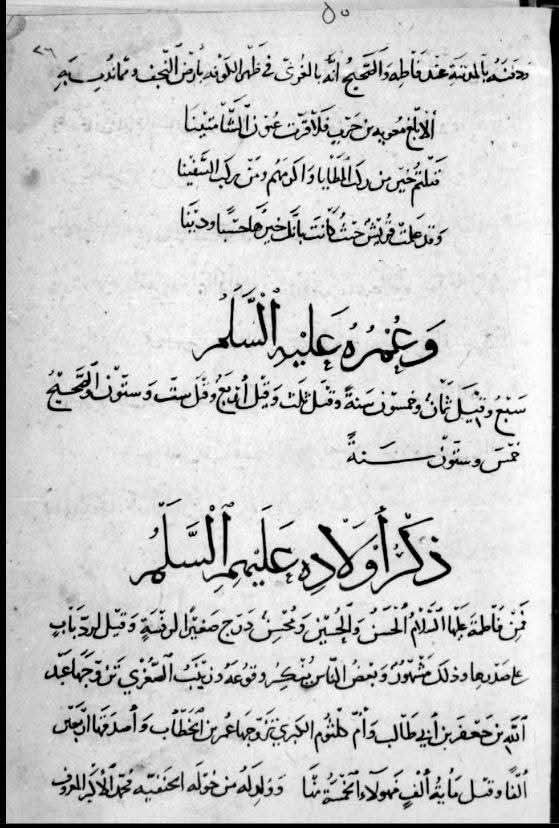 ٥٠
٢٦
ودفنه بالمدينة عند فاطمه والصحيح انه بالغرى في ظهر الكوفه بأرض النجف ومما ندب به
ألا ابلغ معويه بن حرب فلا قرت عيون الشامتينا
قتلتم خير من ركب المطايا واكرمهم ومن ركب السفينا
وقد علمت قريش حيث كانت بانك خيرها حسبا ودينا
وعمره عليه السلم
سبع وقيل ثمان وخمسون سنة وقيل ثلث وقيل أربع وقيل ست وستون والصحيح
خمس وستون سنة
ذكر أولاده عليهم السلم
فمن فاطمة عليها السلام الحسن والحسين ومحسن درج صغيرا لرفسة وقيل لرد باب
على صدرها وذلك مشهور وبعض الناس ينكر وقوعه وزينب الصغرى تزوجها عبد
الله بن جعفر بن أبي طالب وأم كلثوم الكبرى تزوجها عمر بن الخطاب وأصدقها اربعين
ألفا وقيل مأية ألف فهولاء الخمسة منها وولد له من خوله الحنفيه محمد الاكبر المعروف